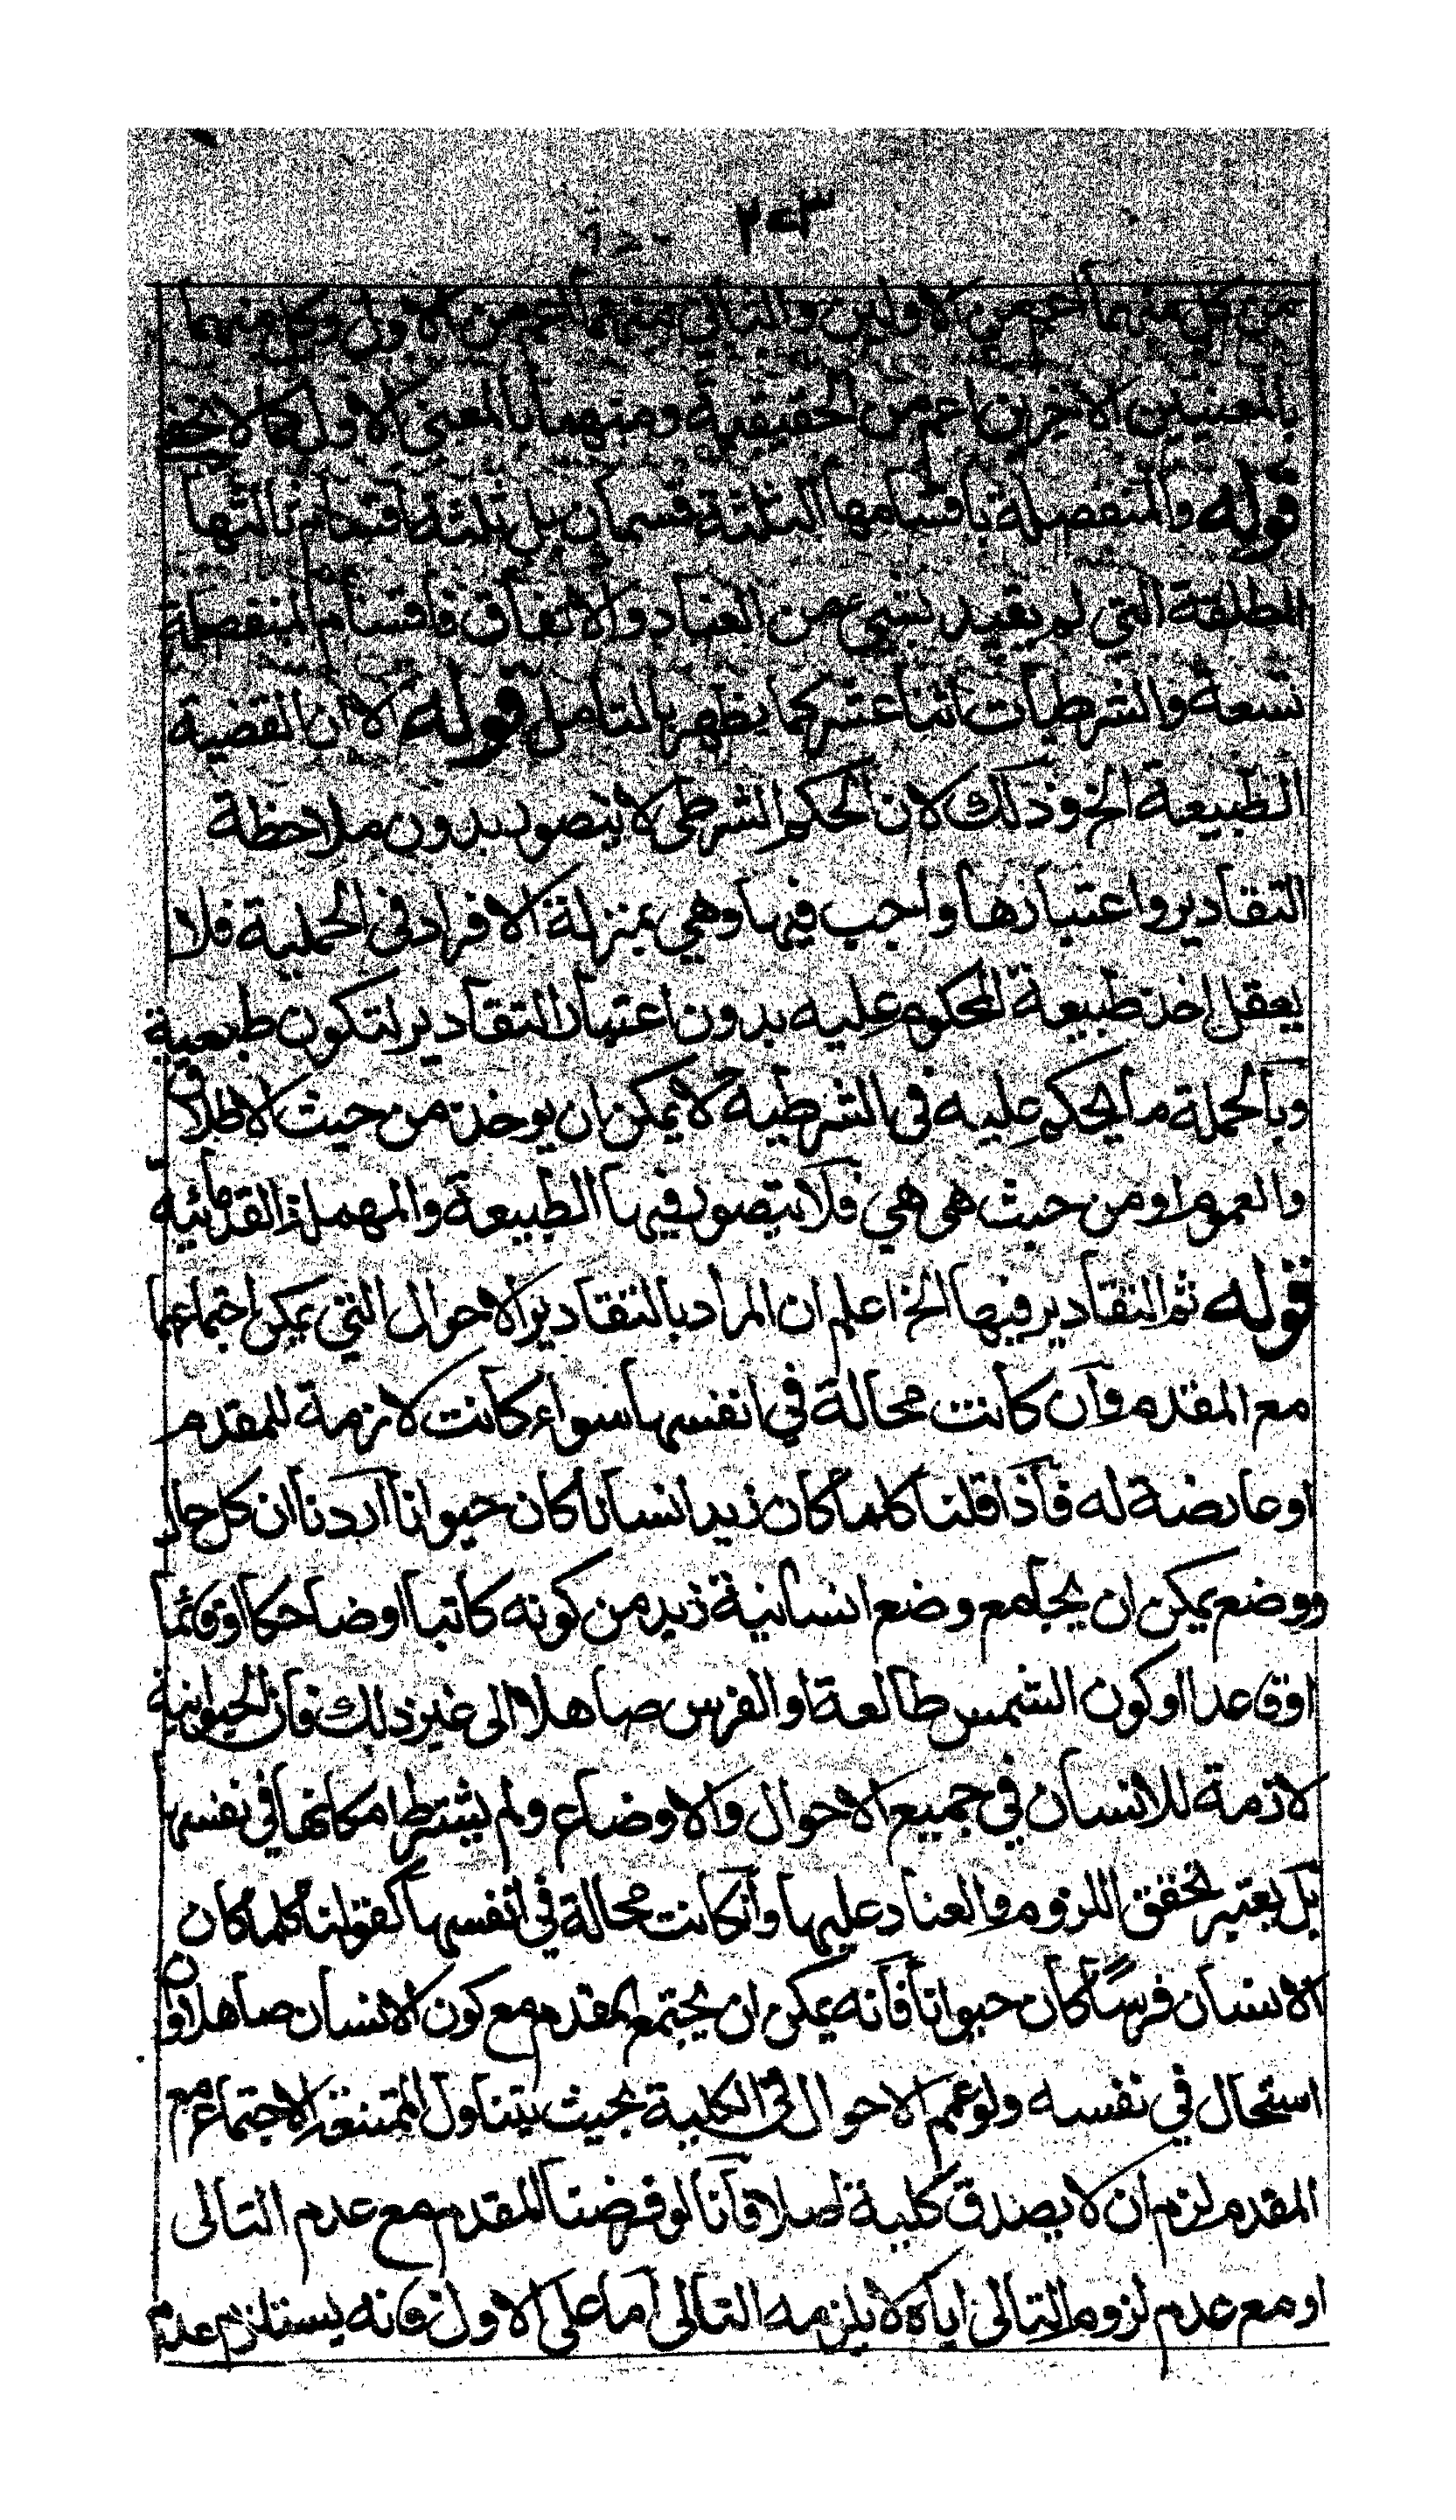 ٢٠٣
من كل منهما اعم من الاولين والتالى منهما اعم من الاول وكل منهما
بالمعنيين الاخرين اعم من الحقيقية ومنهما بالمعنى الاول كما لا يخفى
قوله والمنفصلة باقسامها الثلثة قسمان بل ثلثة اقسام ثالثها
المطلقة التي لم يقيد بشيء من العناد والاتفاق فاقسام المنفصلة
تسعة والشرطيات اثنا عشر كما يظهر بالتامل قوله الا ان القضية
الطبيعة الخ وذلك لان الحكم الشرطى لا يتصور بدون ملاحظة
التقادير واعتبارها واجب فيها وهي بمنزلة الافراد في الحملية فلا
يعقل اخذ طبيعة المحكوم عليه بدون اعتبار التقادير لتكون طبعية
وبالجملة ما يحكم عليه في الشرطية لا يمكن ان يوخذ من حيث الاطلاق
والعموم او من حيث هى هي فلا يتصور فيها الطبيعة والمهملة القدمائيه
قوله ثم التقادير فيها الخ اعلم ان المراد بالتقادير الاحوال التي يمكن اجتماعها
مع المقدم وان كانت محالة في انفسها سواء كانت لازمة للمقدم
او عارضة له فاذا قلنا كلما كان زيد انسانا كان حيوانا اردنا ان كل حال
ووضع يمكن ان يجامع وضع انسانية زيد من كونه كاتبا او ضاحكا او قائما
او قاعدا او كون الشمس طالعة او الفرس صاهلا الى غير ذلك فان الحيوانية
لازمة للانسان في جميع الاحوال والاوضاع ولم يشترط امكانها في نفسها
بل يعتبر تحقق اللزوم والعناد عليها وان كانت محالة في انفسها كقولنا كلما كان
الانسان فرسًا كان حيوانا فانه يمكن ان يجتمع المقدم مع كون الانسان صاهلا وان
استحال في نفسه ولو عمم الاحوال في الكلية بحيث يتناول الممتنعة الاجتماع مع
المقدم لزم ان لا يصدق كلية اصلا فانا لو فرضنا المقدم مع عدم التالى
او مع عدم لزوم التالى اياه لا يلزمه التالى اما على الاول فانه يستلزم عدم